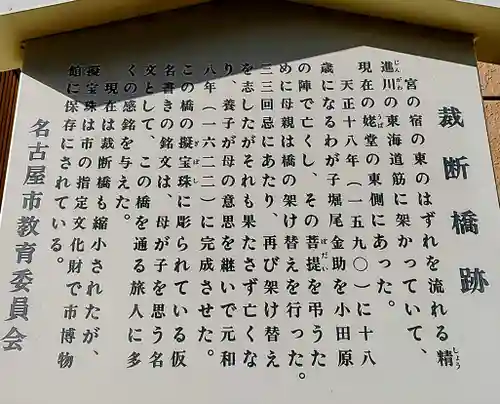 裁断橋跡
宮の宿の東のはずれを流れる精
進川の東海道筋に架かっていて、
現在の姥堂の東側にあった。
天正十八年（一五九〇）に十八
歳になるわが子堀尾金助を小田原
の陣で亡くし、その菩提を弔うた
めに母親は橋の架け替えを行った。
三三回忌にあたり、再び架け替え
を志したがそれも果たさず亡くな
り、養子が母の意思を継いで元和
八年（一六二二）に完成させた。
この橋の擬宝珠に彫られている仮
名書きの銘文は、母が子を思う名
文として、この橋を通る旅人に多
くの感銘を与えた。
現在は裁断橋も縮小されたが、
擬宝珠は市の指定文化財で市博物
館に保存にされている。
名古屋市教育委員会